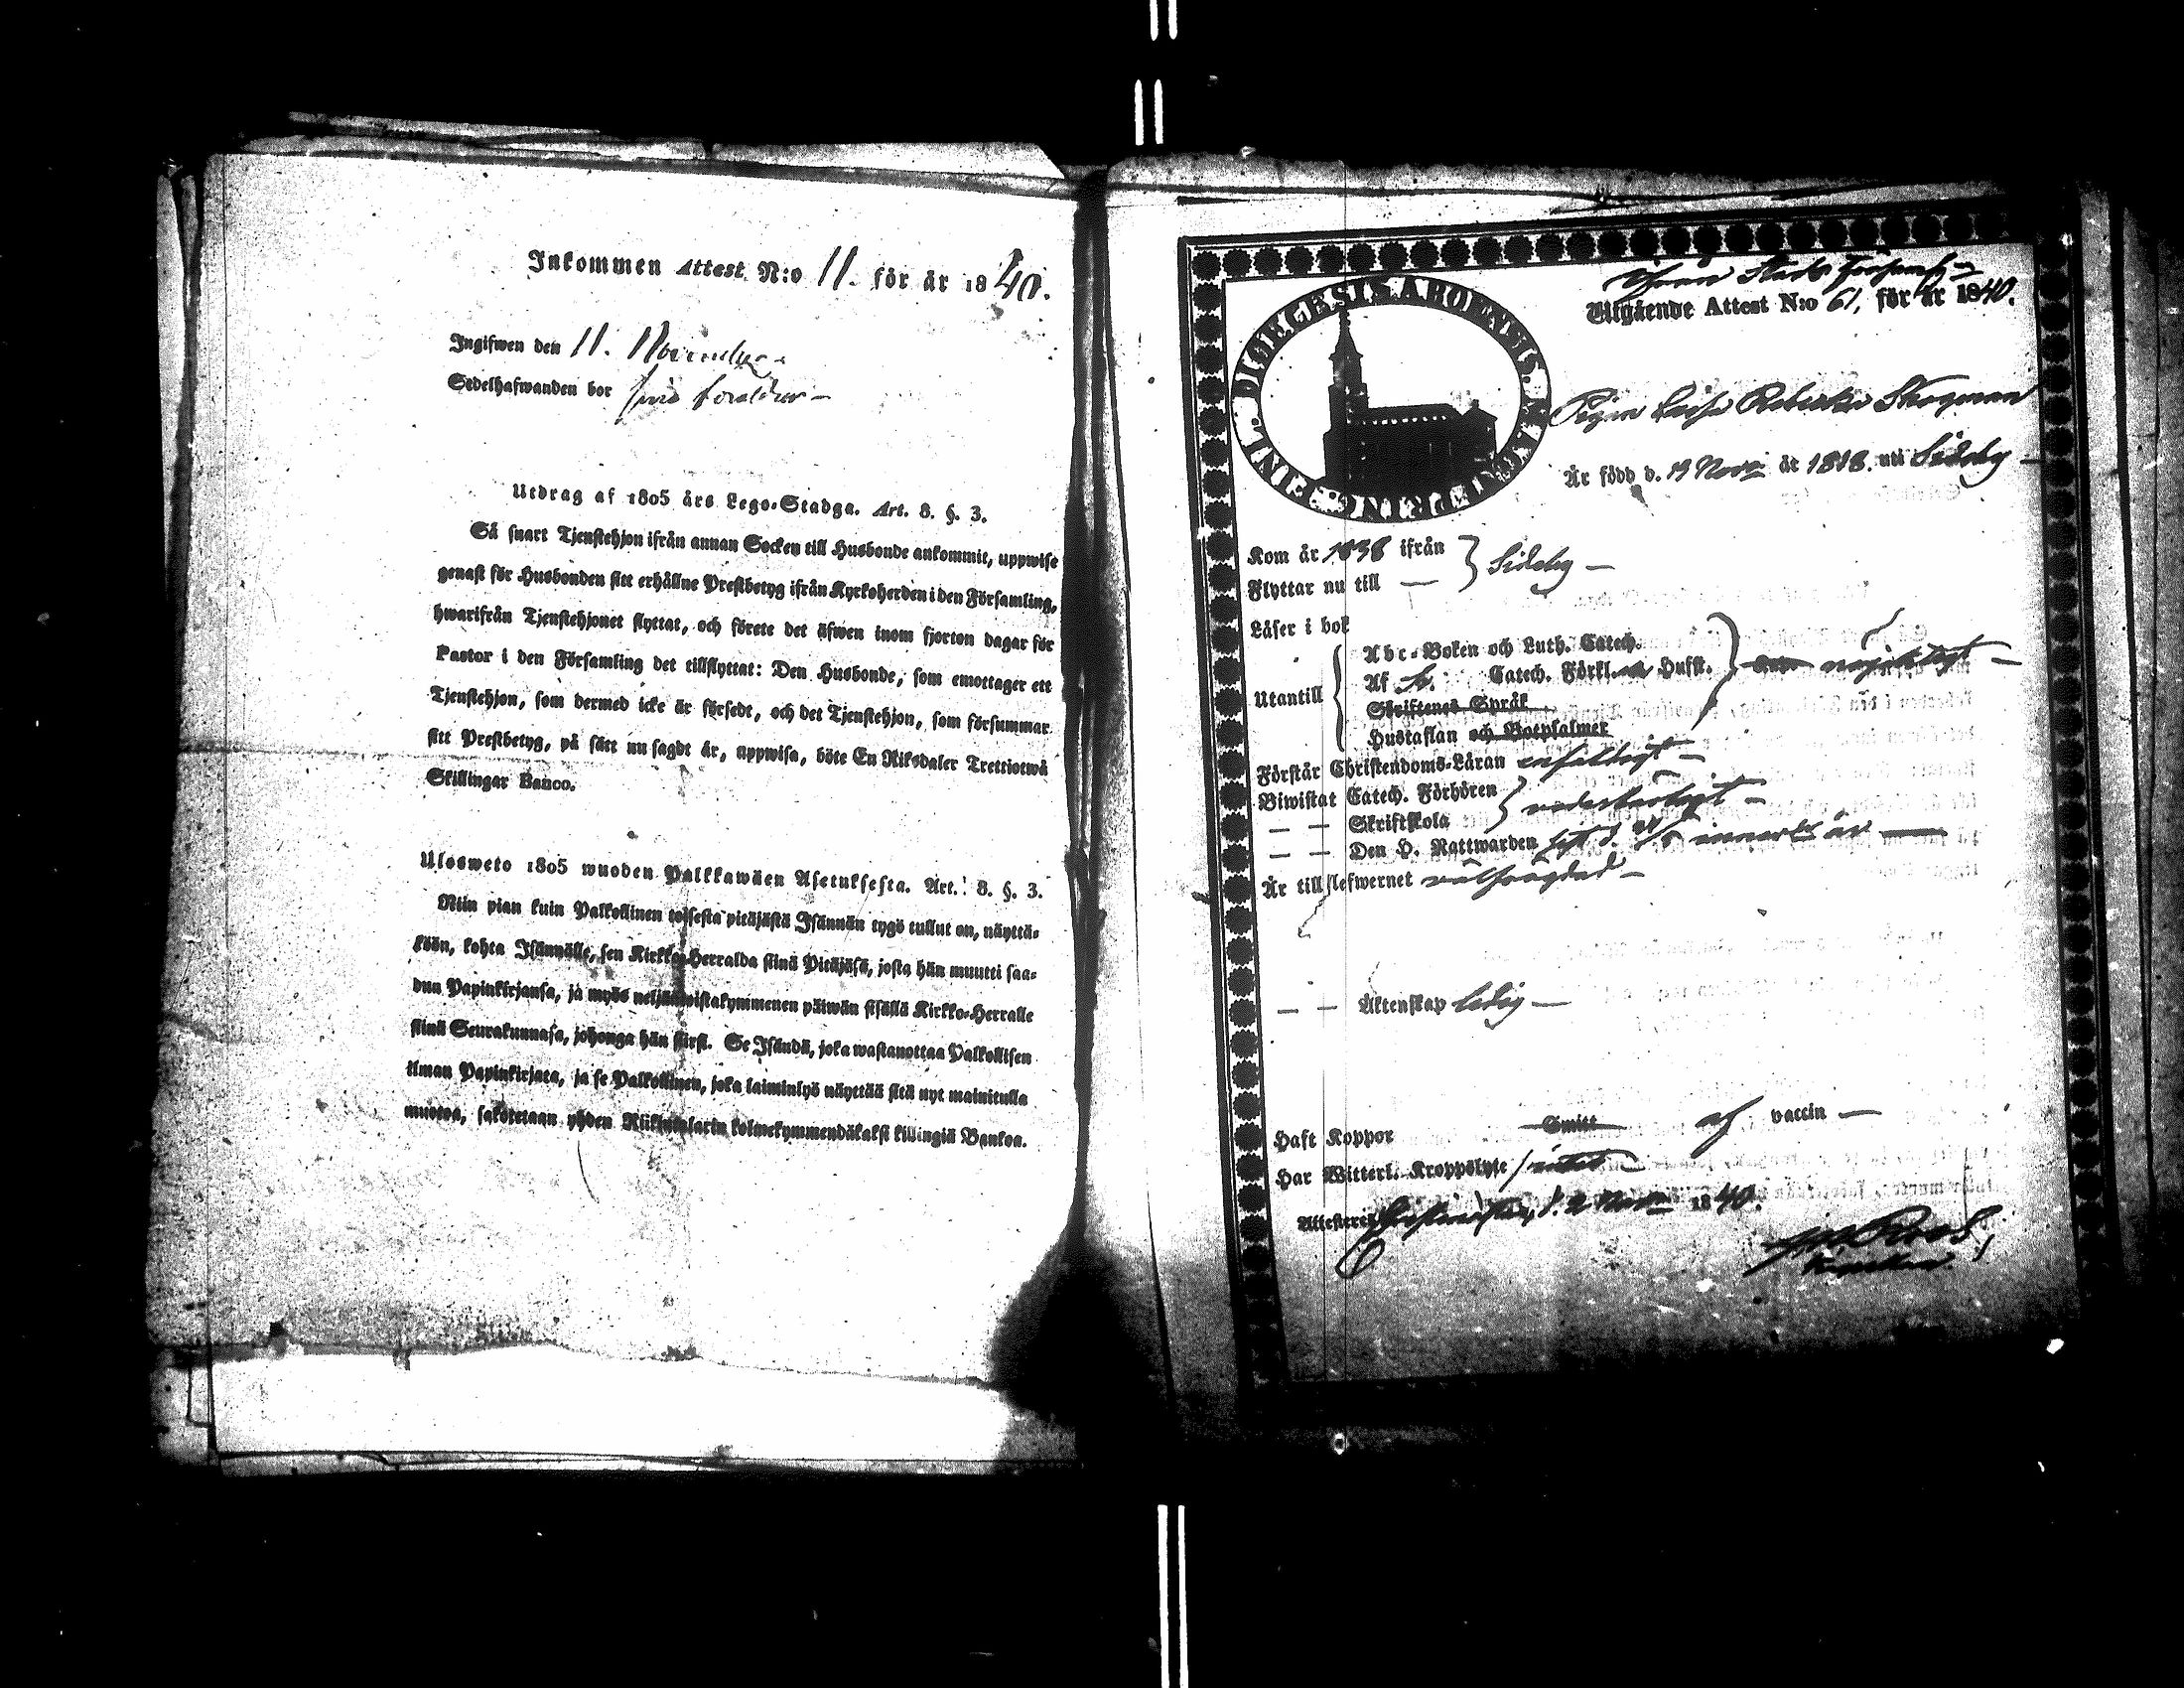 Inkommen Attest N:o 11. för år 1840.
Ingifwen den 11. November
Sedelhafwanden bor sine föräldrar
Utdrag af 1805 års Lego-Stadga. Art. 8. §. 3.
Så snart Tjenstehjon ifrån annan Socken till Husbonde ankommit, uppwise
genast för Husbonden sitt erhållne Prestbetyg ifrån Kyrkoherden i den Församling,
hwarifrån Tjenstehjonet flyttat, och förete det äfwen inom fjorton dagar för
Pastor i den Församling det tillflyttat: Den Husbonde, som emottager ett
Tjenstehjon, som dermed icke är försedt, och det Tjenstehjon, som försummar
sitt Prestbetyg, på sätt nu sagdt är, uppwisa, böte En Riksdaler Trettiotwå
Skillingar Banco.
Ulosweto 1805 wuoden Palkkawäen Asetuksesta. Art. 8. §. 3.
Niin pian kuin Palkollinen toisesta pitäjästä Isännän tygö tullut on, näyttä-
köön, kohta Isännälle, sen Kirkko-Herralda siinä Pitäjäsä, josta hän muutti saa-
dun Papinkirjansa, ja myös neljäntoistakymmenen päiwän sisällä Kirkko-Herralle
siinä Seurakunnasa, johonga hän siirsi. Se Isändä, joka wastanottaa Palkollisen
ilman Papinkirjata, ja se Palkollinen, joka laiminlyö näyttää sitä nyt mainitulla
muotoa, sakotetaan yhden Riikintalarin kolmekymmendäkaksi killingiä Bankoa.
DIOECESIS ABOENSIS. MAGNI PRINC. FINL.
ifrån Stads Församlg
Utgående Attest N:o 61, för år 1840.
Pigan Lisa Rebecka Skogman
Är född d. 19 Nov. år 1818. uti Sideby
Kom år 1838 ifrån
Flyttar nu till — Sideby —
Läser i bok
Utantill
Abc-Boken och Luth. Catech.
Af Sv. Catech. Förkl. Hufst. nöjaktigt —
Skriftenes Språk
Hustaflan och Botpsalmer
Förstår Christendoms-Läran enfaldigt —
Biwistat Catech. Förhören
— — Skriftskola
— — Den H. Nattwarden
Är till lefwernet välfrägdad —
— — Äktenskap ledig —
Haft Koppor Smitt af vaccin —
Har Witterl. Kroppslyte intet —
Attesterar Christinestad, d. 2 Nov. 1840.